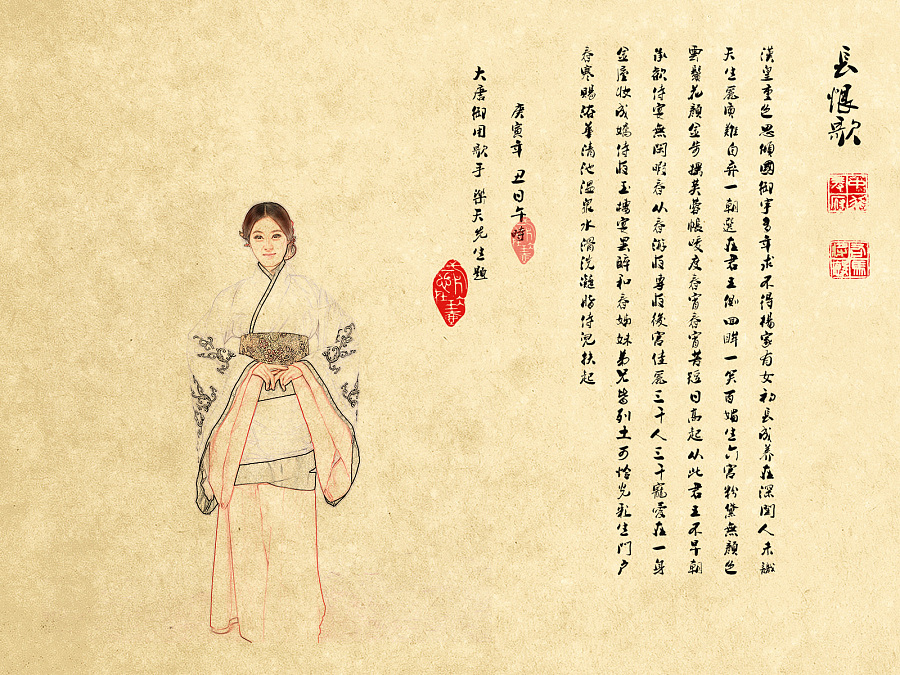 長恨歌
漢皇重色思傾國御宇多年求不得楊家有女初長成養在深閨人未識
天生麗質難自弃一朝選在君王側回眸一笑百媚生六宮粉黛無顏色
雲鬢花顏金步搖芙蓉帳暖度春宵春宵苦短日高起从此君王不早朝
承歡侍宴無閑暇春从春游夜專夜後宮佳麗三千人三千寵愛在一身
金屋妝成嬌侍夜玉樓宴罷醉和春姊妹弟兄皆列土可憐光彩生門戶
春寒賜浴華清池溫泉水滑洗凝脂侍兒扶起
庚寅年 丑日午時
大唐御用歌手 樂天先生題